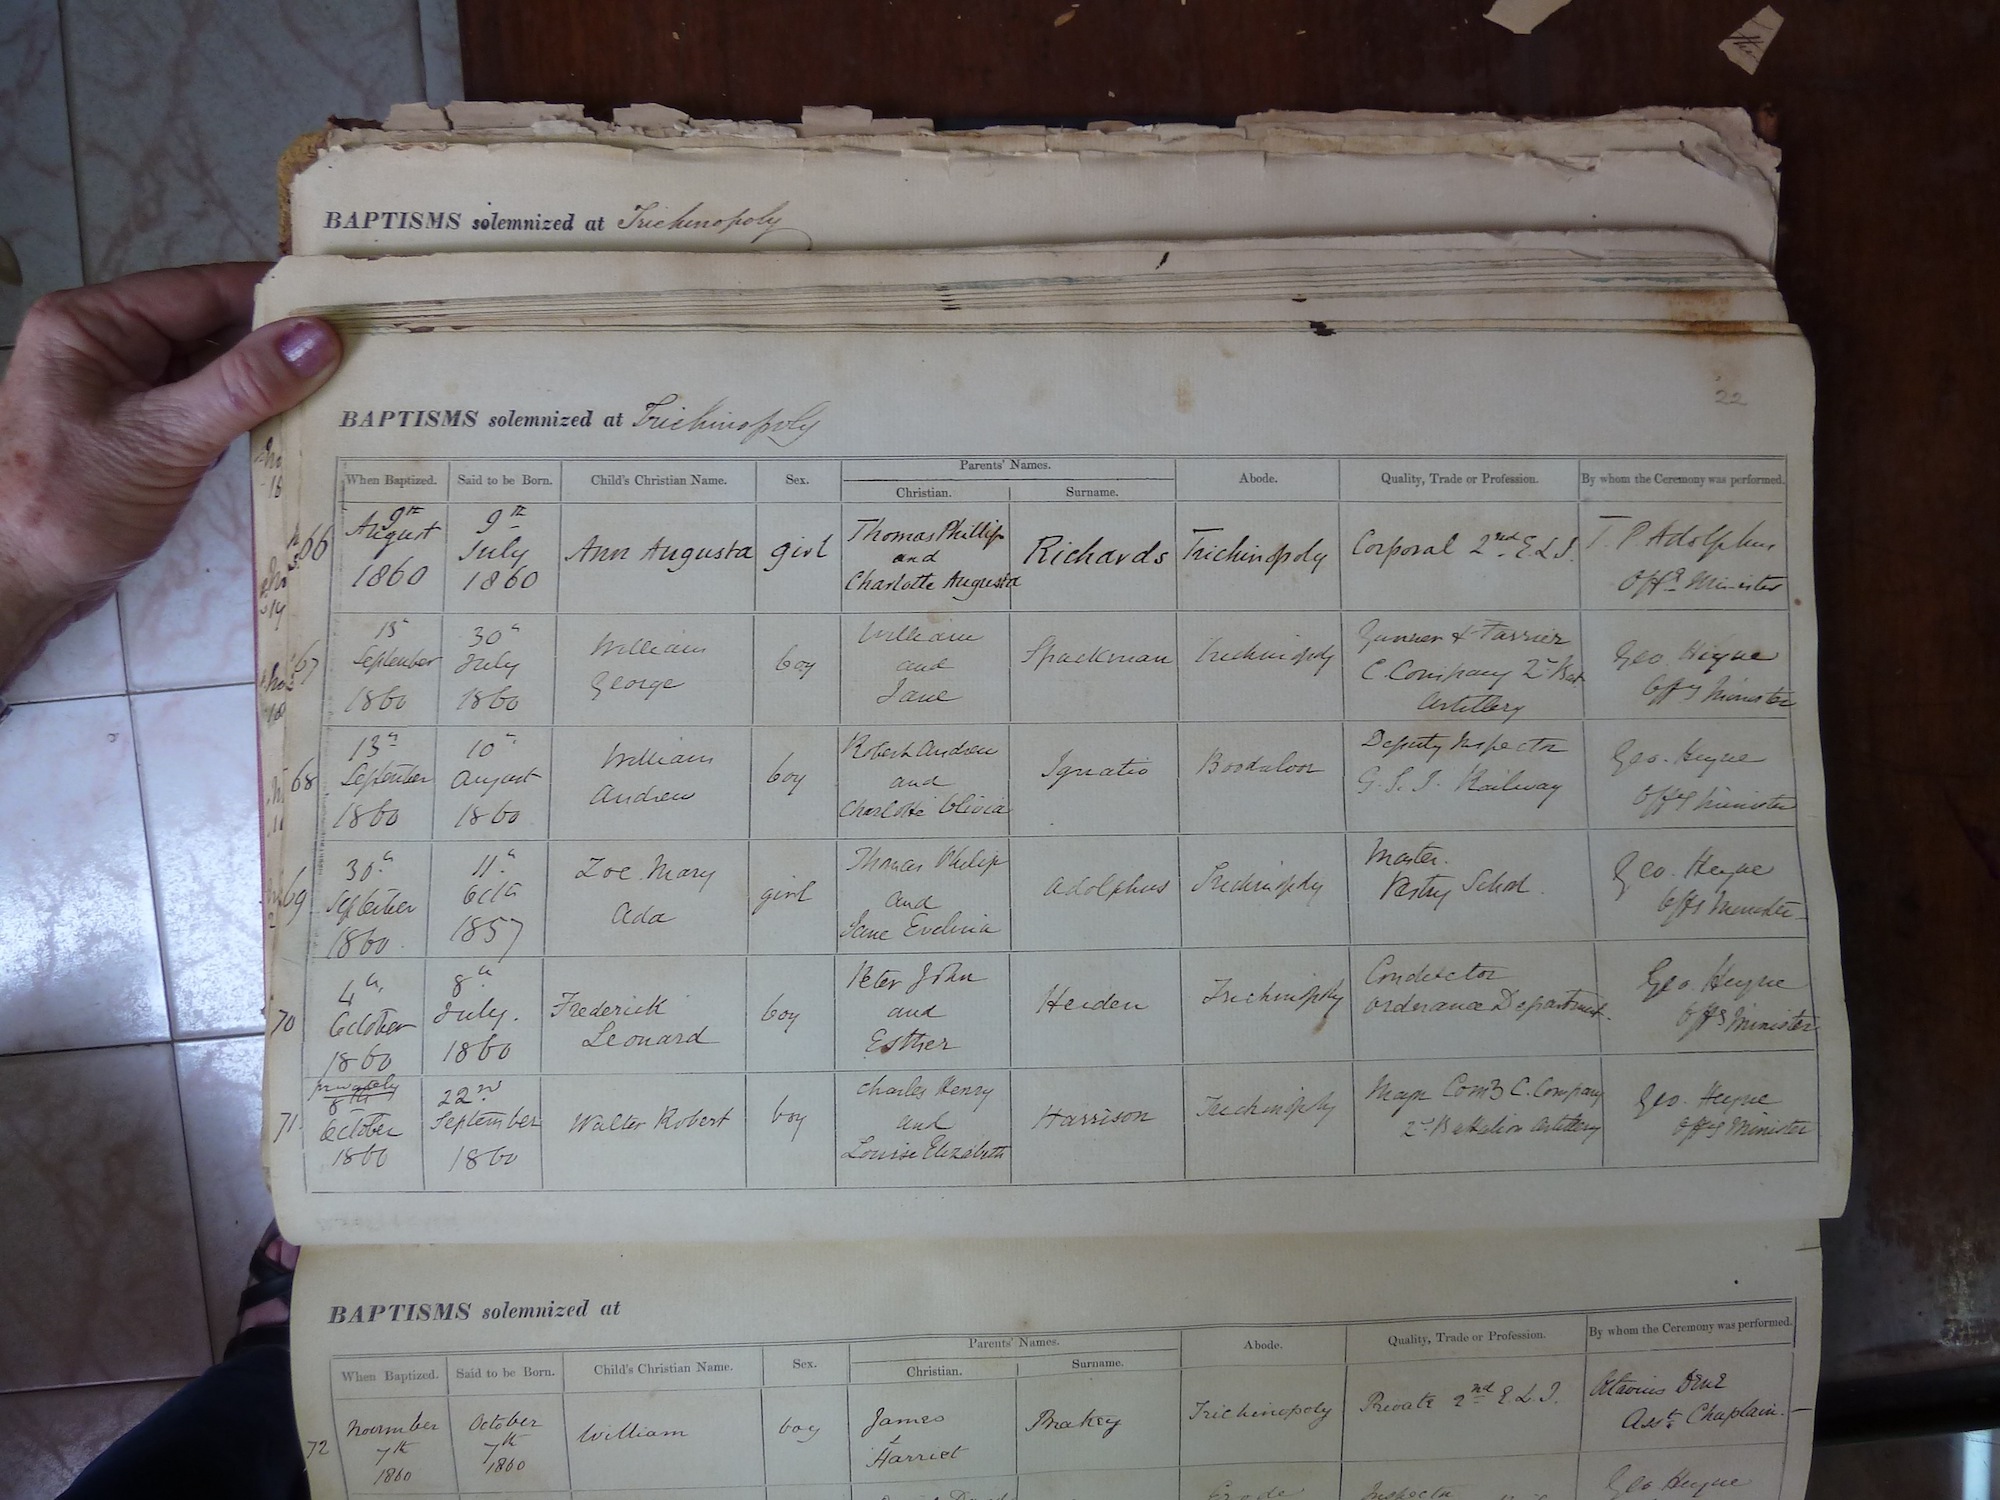 BAPTISMS solemnized at Trichinopoly
22
BAPTISMS solemnized at Trichinopoly
When Baptized. Said to be Born. Child's Christian Name. Sex. Parents' Names. Abode. Quality, Trade or Profession. By whom the Ceremony was performed.
Christian. Surname.
66 9th August 1860 9th July 1860 Ann Augusta girl Thomas Phillip and Charlotte Augusta Richards Trichinopoly Corporal 2nd E.L.I. T. P. Adolphus Offg Minister
67 September 1860 30th July 1860 William George boy William and Jane Spackman Trichinopoly Gunner & Farrier C. Company 2d Bat Artillery Geo. Heyne Offg Minister
68 13th September 1860 10th August 1860 William Andrew boy Robert Andrew and Charlotte Olivia Ignatio Boodaloor Deputy Inspector G. S. I. Railway Geo. Heyne Offg Minister
69 30th September 1860 11th Octr 1857 Zoe Mary Ada girl Thomas Philip and Jane Evelina Adolphus Trichinopoly Master Vestry School. Geo. Heyne Offg Minister
70 4th October 1860 8th July. 1860 Frederick Leonard boy Peter John and Esther Heiden Trichinopoly Conductor Ordnance Department. Geo. Heyne Offg Minister
71 privately 8th October 1860 22nd September 1860 Walter Robert boy Charles Henry and Louisa Elizabeth Harrison Trichinopoly Major Comg C. Company 2d Battalion Artillery Geo. Heyne Offg Minister
BAPTISMS solemnized at
When Baptized. Said to be Born. Child's Christian Name. Sex. Parents' Names. Abode. Quality, Trade or Profession. By whom the Ceremony was performed.
Christian. Surname.
72 November 7th 1860 October 7th 1860 William boy James & Harriet Trichinopoly Private 2nd E.L.I. Octavius Asst. Chaplain.
Erode Inspector Geo Heyne